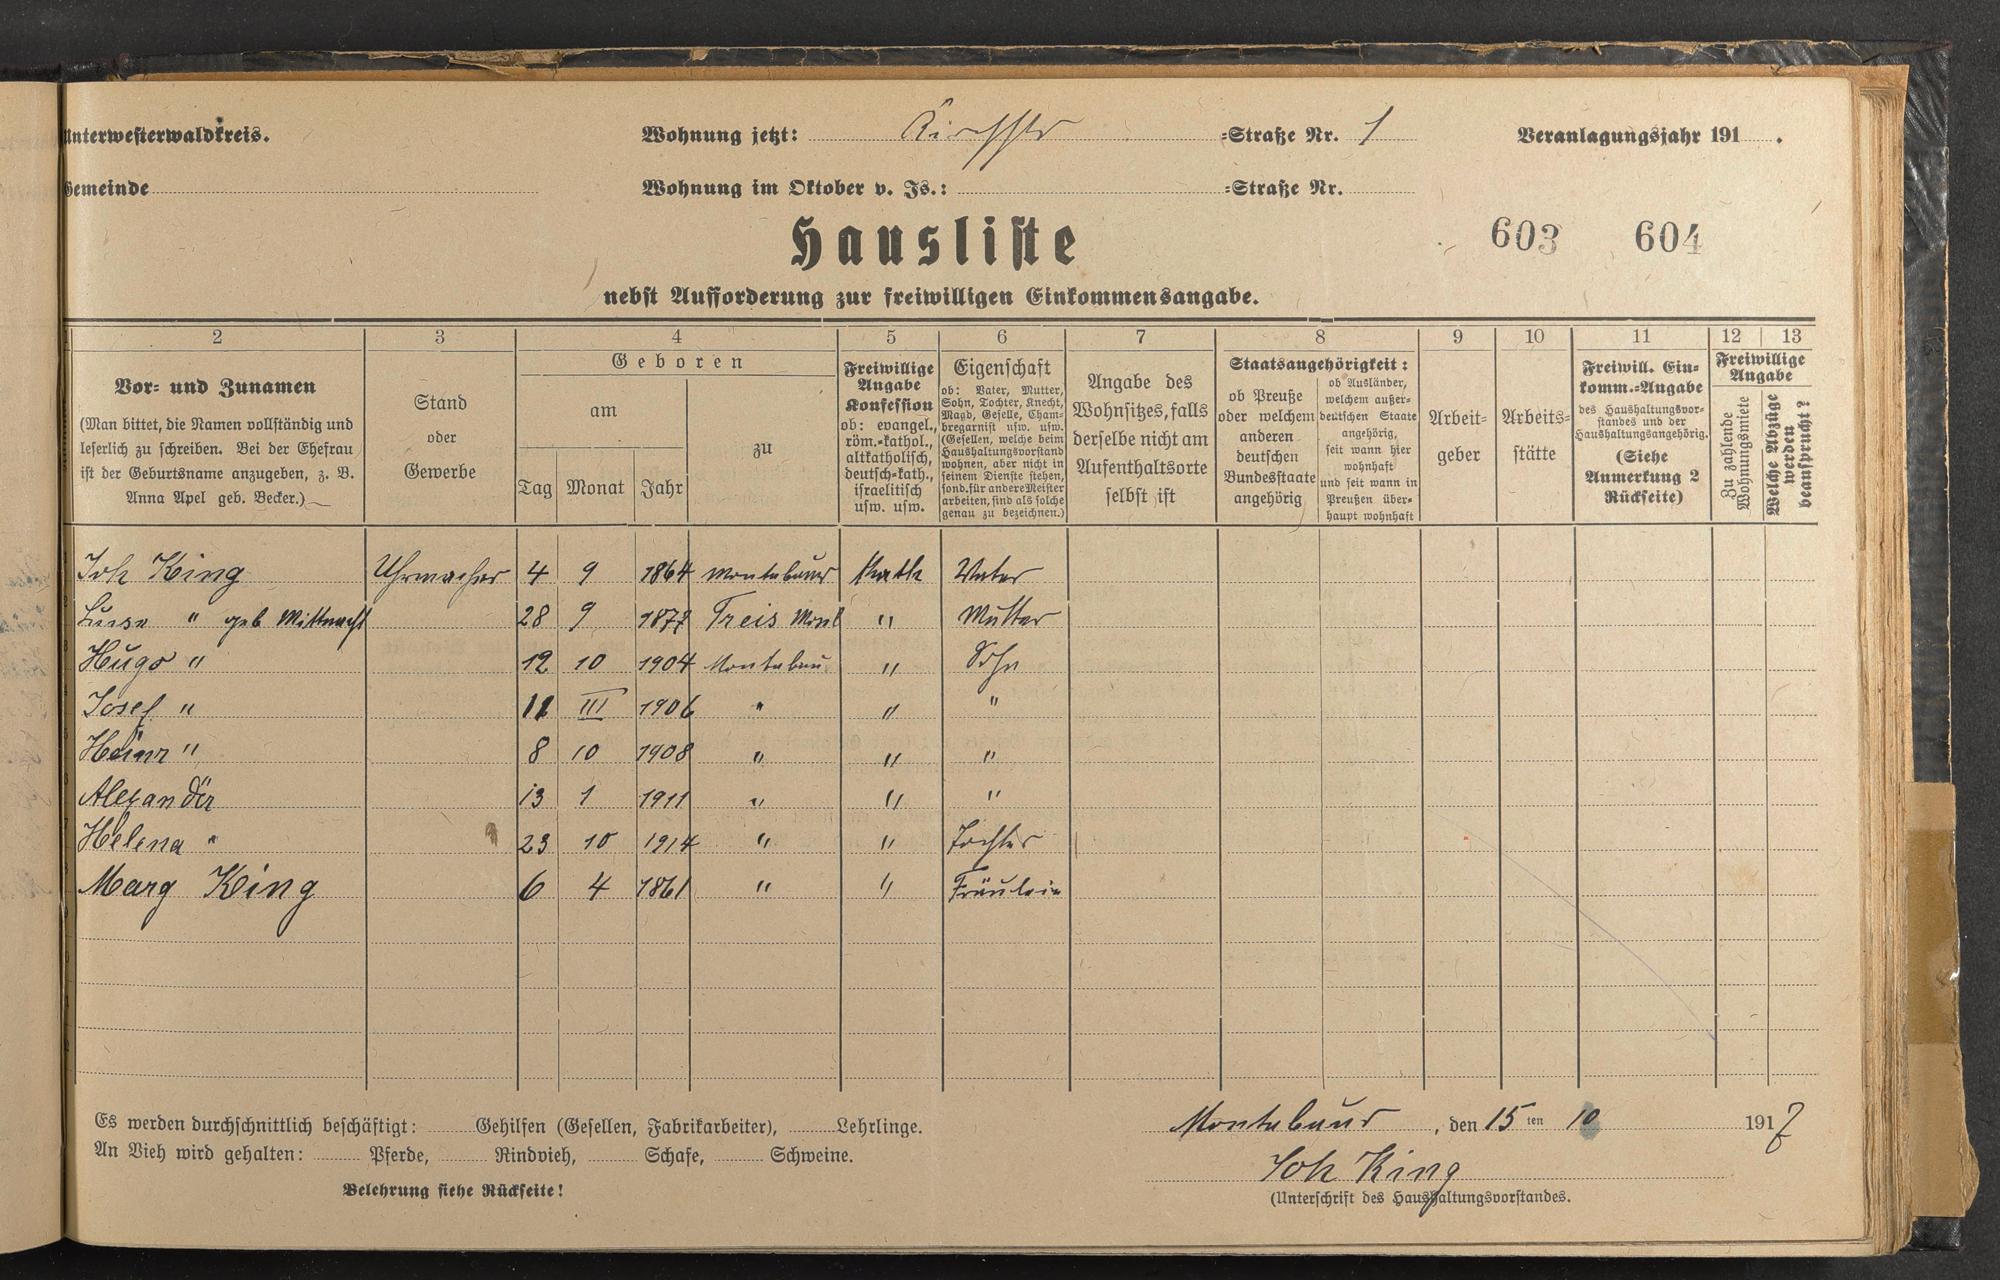 Unterwesterwaldkreis.
Wohnung jetzt: Kirchstr =Straße Nr. 1
Veranlagungsjahr 191 .
Gemeinde
Wohnung im Oktober v. Js.: =Straße Nr.
Hausliste
603 604
nebst Aufforderung zur freiwilligen Einkommensangabe.
2 3 4 5 6 7 8 9 10 11 12 13
Vor- und Zunamen
(Man bittet, die Namen vollständig und
leserlich zu schreiben. Bei der Ehefrau
ist der Geburtsname anzugeben, z. B.
Anna Apel geb. Becker.)
Stand
oder
Gewerbe
Geboren
am
Tag Monat Jahr
zu
Freiwillige
Angabe
Konfession
ob: evangel.,
röm.-kathol.,
altkatholisch,
deutsch-kath.,
israelitisch
usw. usw.
Eigenschaft
ob: Vater, Mutter,
Sohn, Tochter, Knecht,
Magd, Geselle, Cham-
bregarnist usw. usw.
(Gesellen, welche beim
Haushaltungsvorstand
wohnen, aber nicht in
seinem Dienste stehen,
sond. für andere Meister
arbeiten, sind als solche
genau zu bezeichnen.)
Angabe des
Wohnsitzes, falls
derselbe nicht am
Aufenthaltsorte
selbst ist
Staatsangehörigkeit:
ob Preuße
oder welchem
anderen
deutschen
Bundesstaate
angehörig
ob Ausländer,
welchem außer-
deutschen Staate
angehörig,
seit wann hier
wohnhaft
und seit wann in
Preußen über-
haupt wohnhaft
Arbeit-
geber
Arbeits-
stätte
Freiwill. Ein-
komm.-Angabe
des Haushaltungsvor-
standes und der
Haushaltungsangehörig.
(Siehe
Anmerkung 2
Rückseite)
Freiwillige
Angabe
Zu zahlende
Wohnungsmiete
Welche Abzüge
werden
beansprucht?
Joh King Uhrmacher 4 9 1864 Montabaur Kath Vater
Luise " geb Mittnacht 28 9 1877 Treis Mosel " Mutter
Hugo " 12 10 1904 Montabau " Sohn
Josef " 12 III 1906 " " "
Heinr " 8 10 1908 " " "
Alexander 13 1 1911 " " "
Helena " 23 10 1914 " " Tochter
Marg King 6 4 1861 " " Fräulein
Es werden durchschnittlich beschäftigt: Gehilfen (Gesellen, Fabrikarbeiter), Lehrlinge.
Montabaur , den 15 ten 10 1917
An Vieh wird gehalten: Pferde, Rindvieh, Schafe, Schweine.
Joh King
Belehrung siehe Rückseite!
(Unterschrift des Haushaltungsvorstandes.